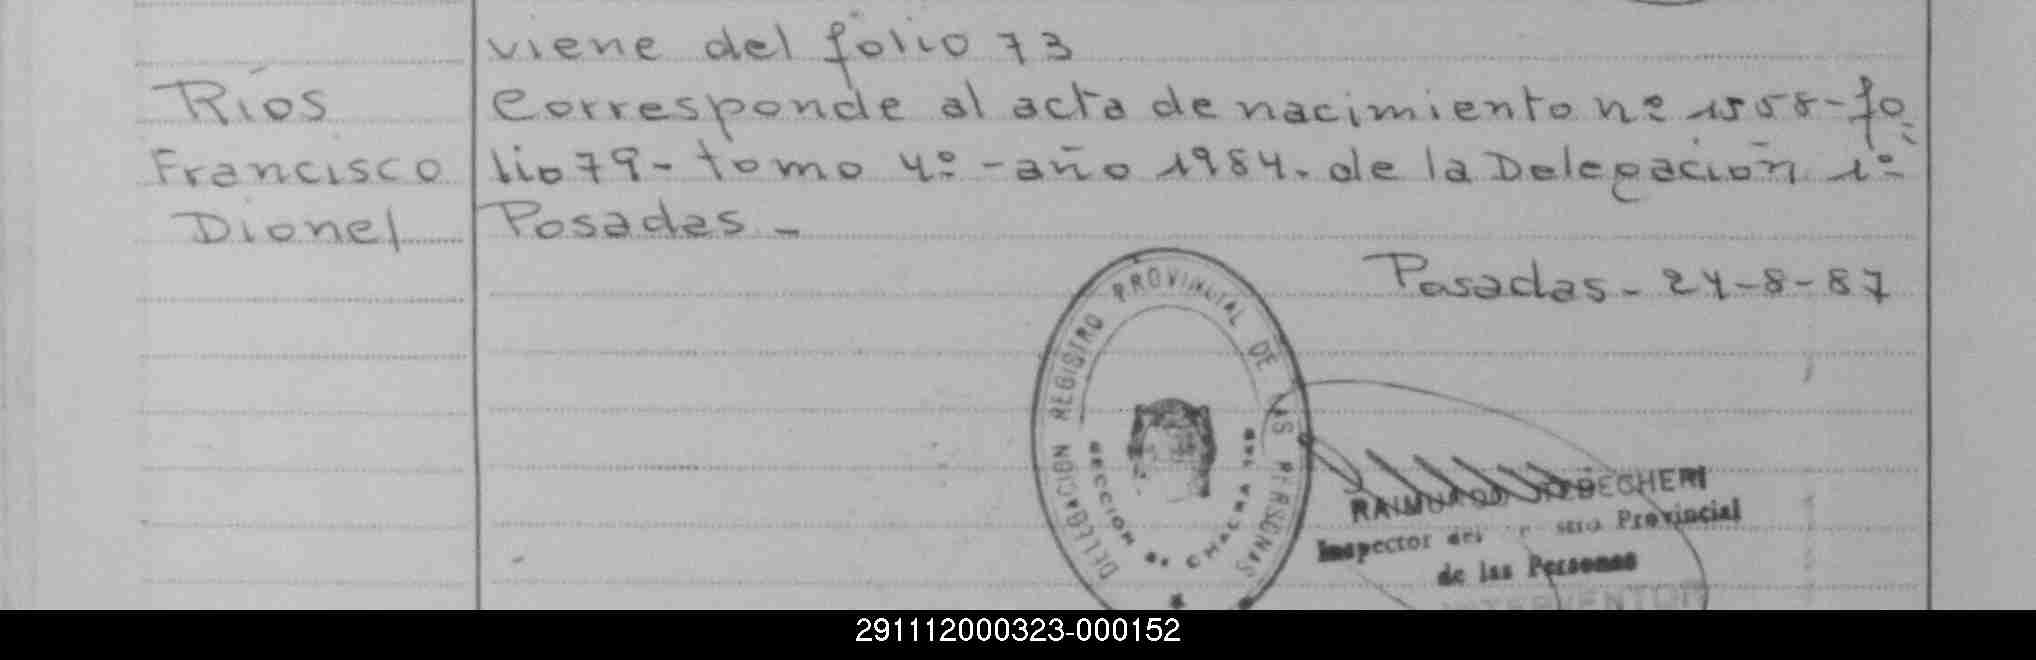 viene del folio 73
Ríos
Corresponde al acta de nacimiento nº 1558-fo
Francisco
lio 79- tomo 4º -año 1984. de la Delegación 1º
Dionel
Posadas -
Posadas - 24-8-87
DELEGACION REGISTRO PROVINCIAL DE LAS PERSONAS
SECCION
CHACRA
RAIMUNDO
Inspector del Provincial
de las Personas
INTERVENTOR
291112000323-000152